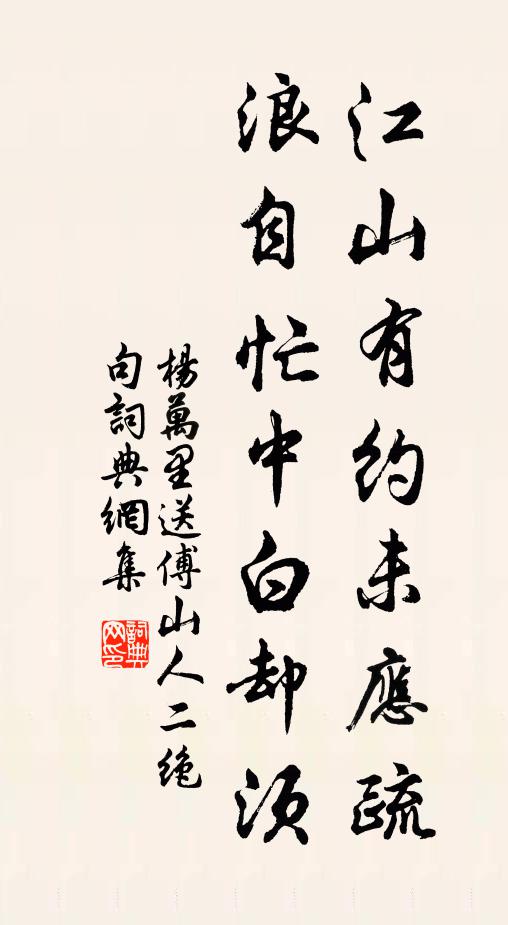 江山有約未應疏
浪自忙中白却須
楊萬里送傅山人二絶
句詞典網集
詞典
网印